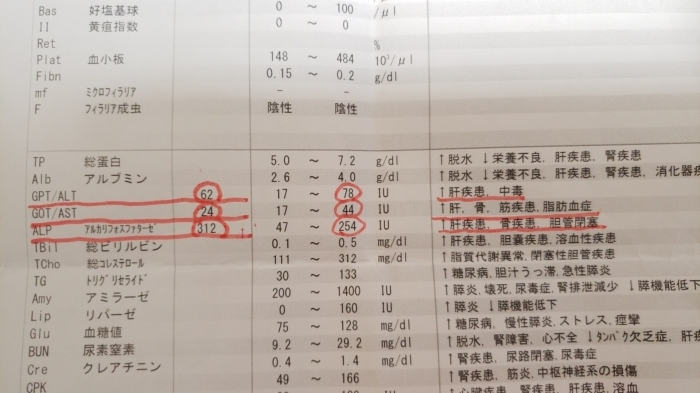 Bas 好塩基球 0 ～ 100 /μl
II 黄疸指数 0 ～ 0
Ret %
Plat 血小板 148 ～ 484 10³/μl
Fibn 0.15 ～ 0.2 g/dl
mf ミクロフィラリア － －
F フィラリア成虫 陰性 陰性
TP 総蛋白 5.0 ～ 7.2 g/dl ↑脱水 ↓栄養不良、肝疾患、腎疾患
Alb アルブミン 2.6 ～ 4.0 g/dl ↑脱水 ↓栄養不良、肝疾患、腎疾患、消化器疾
GPT/ALT 62 17 ～ 78 IU ↑肝疾患、中毒
GOT/AST 24 17 ～ 44 IU ↑肝、骨、筋疾患、脂肪血症
ALP アルカリフォスファターゼ 312 ↑ 47 ～ 254 IU ↑肝疾患、骨疾患、胆管閉塞
TBil 総ビリルビン 0.1 ～ 0.5 mg/dl ↑肝疾患、胆嚢疾患、溶血性疾患
TCho 総コレステロール 111 ～ 312 mg/dl ↑脂質代謝異常、閉塞性胆管疾患
TG トリグリセライド 30 ～ 133 ↑糖尿病、胆汁うっ滞、急性膵炎
Amy アミラーゼ 200 ～ 1400 IU ↑膵炎、壊死、尿毒症、腎排泄減少 ↓膵機能低下
Lip リパーゼ 0 ～ 160 IU ↑膵炎 ↓膵機能低下
Glu 血糖値 75 ～ 128 mg/dl ↑糖尿病、慢性膵炎、ストレス、痙攣
BUN 尿素窒素 9.2 ～ 29.2 mg/dl ↑脱水、腎障害、心不全 ↓タンパク欠乏症、肝疾
Cre クレアチニン 0.4 ～ 1.4 mg/dl ↑腎疾患、尿路閉塞、尿毒症
CPK 49 ～ 166 ↑腎疾患、筋炎、中枢神経系の損傷